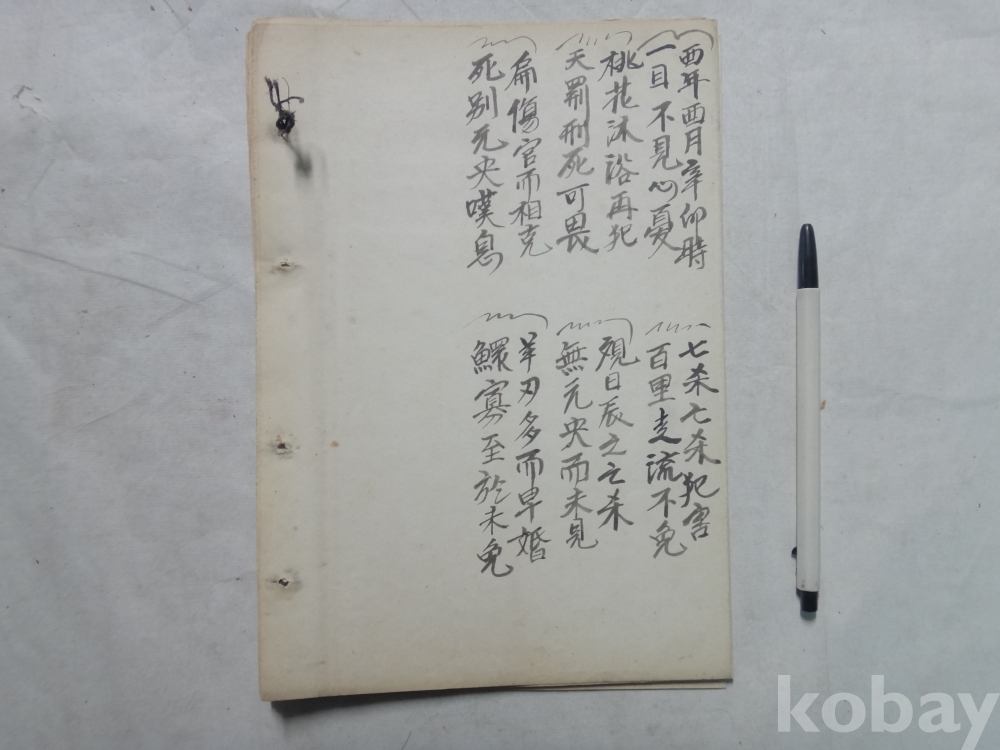 酉年酉月辛卯時
一目不見心憂
桃花沐浴再犯
天罰刑死可畏
扁傷官而相克
死別元央嘆息
七杀七杀犯害
百里走流不免
視日辰之七杀
無元央而未見
羊刃多而早婚
鰥寡至於未免
kobay